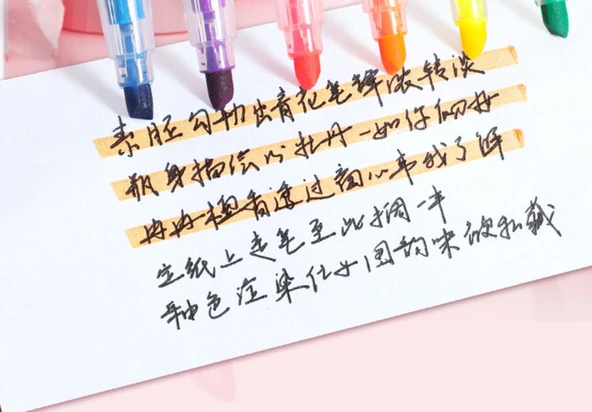 素胚勾勒出青花笔锋浓转淡
瓶身描绘的牡丹一如你初妆
冉冉檀香透过窗心事我了然
宣纸上走笔至此搁一半
釉色渲染仕女图韵味被私藏